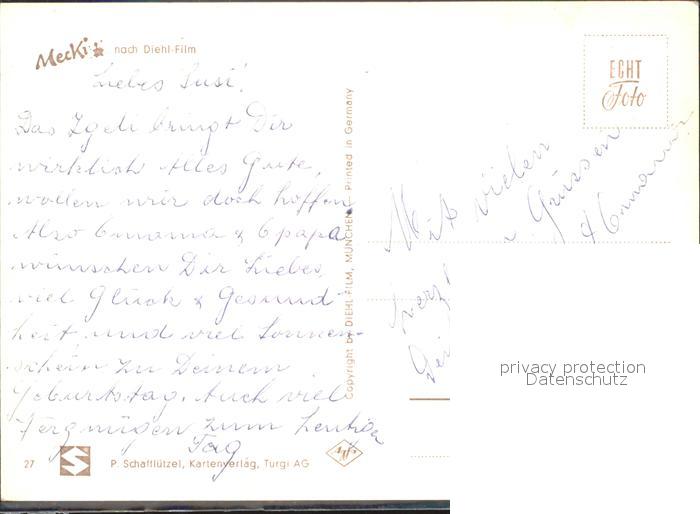 Mecki nach Diehl-Film
Liebes Susi!
Das Igeli bringt Dir
wirklich Alles Gute,
wollen wir doch hoffen
Also Omama & Opapa
wünschen Dir Liebes,
viel Glück & Gesund-
heit und viel Sonnen-
schein zu Deinem
Geburtstag. Auch viel
Vergnügen zum heutigen
Tag
27
P. Schafflützel, Kartenverlag, Turgi AG
Agfa
Copyright by DIEHL-FILM, MÜNCHEN Printed in Germany
ECHT
Foto
Mit vielen
Grüssen
Omama
privacy protection
Datenschutz